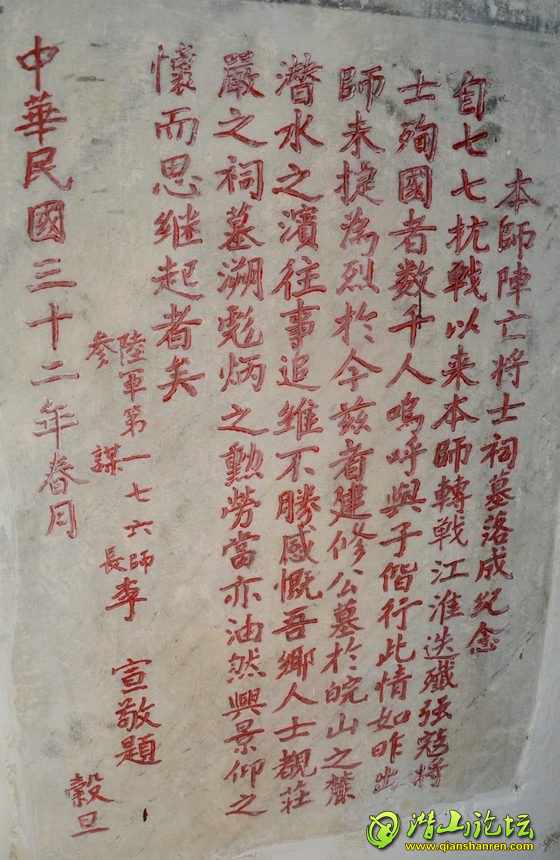 本師陣亡將士祠墓落成纪念
自七七抗戰以来本師轉戰江淮迭殲强寇將
士殉國者数千人嗚呼與子偕行此情如昨出
師未捷為烈於今兹者建修公墓於皖山之麓
潛水之濱往事追維不勝感慨吾鄉人士覩莊
嚴之祠墓溯彪炳之勳勞當亦油然興景仰之
懷而思继起者矣
陸軍第一七六師
參謀長李宣敬題
中華民國三十二年春月
榖旦
潜山论坛
www.qianshanren.com